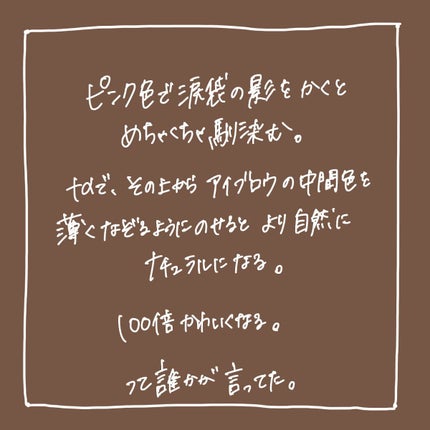 ピンク色で涙袋の影をかくと
めちゃくちゃ馴染む。
んで、その上から アイブロウの中間色を
薄くなぞるようにのせると より自然に
ナチュラルになる。
100倍かわいくなる。
って誰かが言ってた。